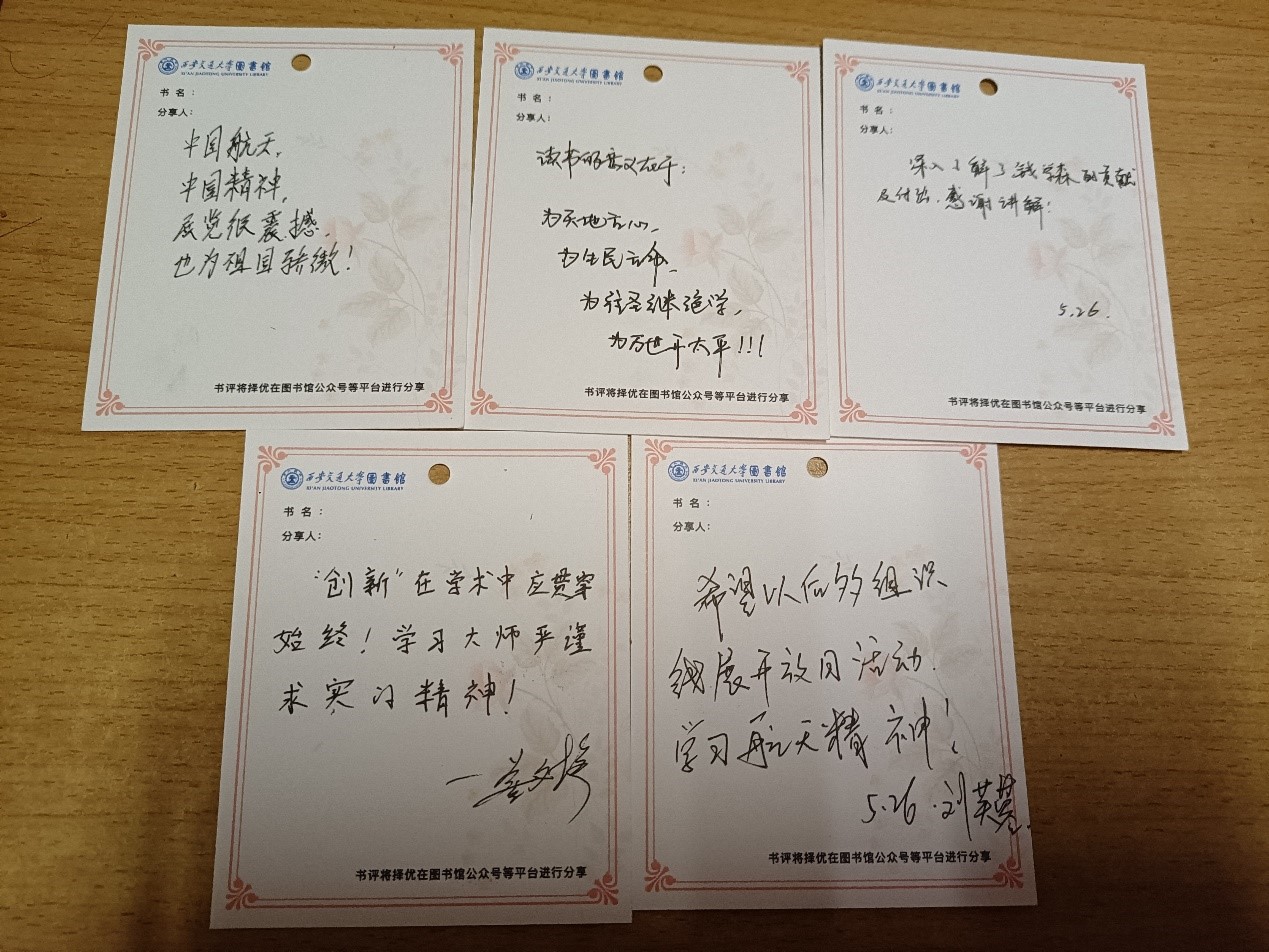 西安交通大学圖書馆
XI'AN JIAOTONG UNIVERSITY LIBRARY
书 名 :
分享人:
中国航天,
中国精神,
展览很震撼,
也为祖国骄傲!
书评将择优在图书馆公众号等平台进行分享
西安交通大学圖書馆
XI'AN JIAOTONG UNIVERSITY LIBRARY
书 名 :
分享人:
读书的意义在于:
为天地立心,
为生民立命、
为往圣继绝学,
为万世开太平!!!
书评将择优在图书馆公众号等平台进行分享
西安交通大学圖書馆
XI'AN JIAOTONG UNIVERSITY LIBRARY
书 名 :
分享人:
深入了解了钱学森的贡献
及付出,感谢讲解!
5.26.
书评将择优在图书馆公众号等平台进行分享
西安交通大学圖書馆
XI'AN JIAOTONG UNIVERSITY LIBRARY
书 名 :
分享人:
“创新”在学术中应贯穿
始终!学习大师严谨
求实的精神!
书评将择优在图书馆公众号等平台进行分享
西安交通大学圖書馆
XI'AN JIAOTONG UNIVERSITY LIBRARY
书 名 :
分享人:
希望以后多组织
线展开放日活动.
学习航天精神!
5.26.刘英
书评将择优在图书馆公众号等平台进行分享